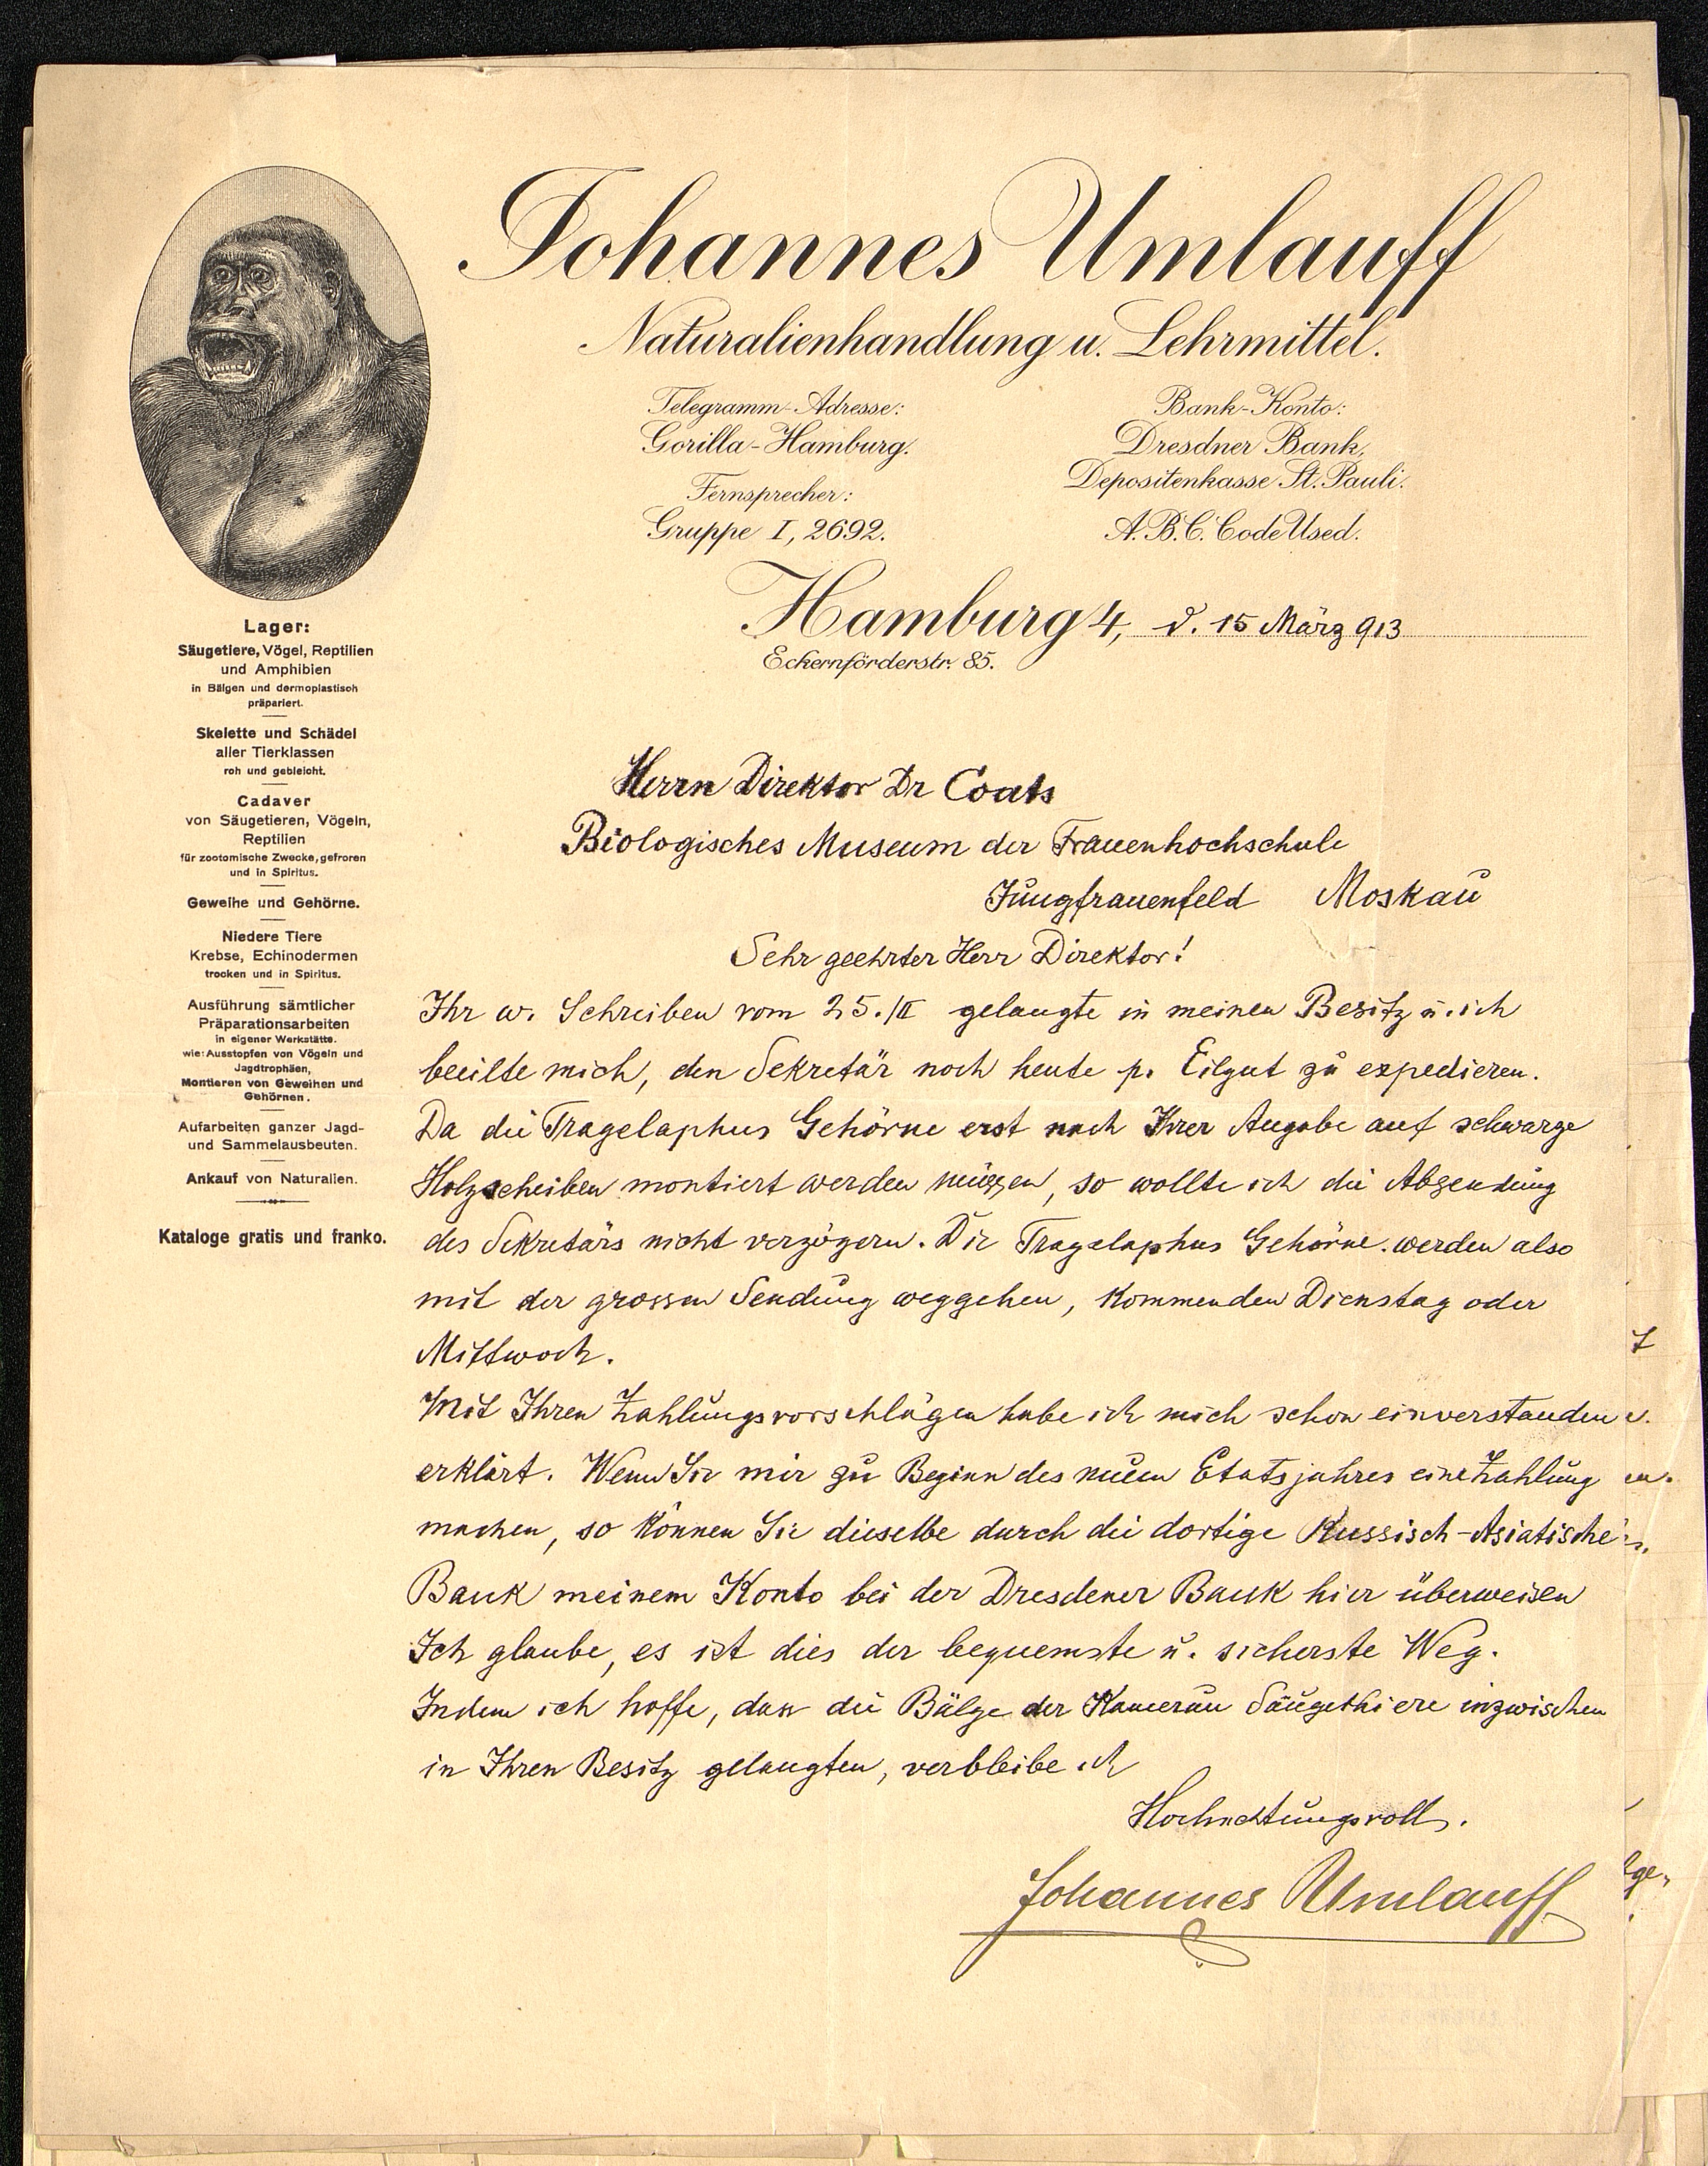 Johannes Umlauff
Naturalienhandlung u. Lehrmittel.
Telegramm-Adresse:
Gorilla-Hamburg.
Fernsprecher:
Gruppe I, 2692.
Bank-Konto:
Dresdner Bank,
Depositenkasse St. Pauli.
A.B.C. Code Used.
Hamburg 4, d. 15 März 913
Eckernförderstr. 85.
Lager:
Säugetiere, Vögel, Reptilien
und Amphibien
in Bälgen und dermoplastisch
präpariert.
Skelette und Schädel
aller Tierklassen
roh und gebleicht.
Cadaver
von Säugetieren, Vögeln,
Reptilien
für zootomische Zwecke, gefroren
und in Spiritus.
Geweihe und Gehörne.
Niedere Tiere
Krebse, Echinodermen
trocken und in Spiritus.
Ausführung sämtlicher
Präparationsarbeiten
in eigener Werkstätte.
wie: Ausstopfen von Vögeln und
Jagdtrophäen,
Montieren von Geweihen und
Gehörnen.
Aufarbeiten ganzer Jagd-
und Sammelausbeuten.
Ankauf von Naturalien.
Kataloge gratis und franko.
Herrn Direktor Dr Coats
Biologisches Museum der Frauenhochschule
Jungfrauenfeld Moskau
Sehr geehrter Herr Direktor!
Ihr w. Schreiben vom 25./II gelangte in meinen Besitz u. ich
beeilte mich, den Sekretär noch heute p. Eilgut zu expedieren.
Da die Tragelaphus Gehörne erst nach Ihrer Angabe auf schwarze
Holzscheiben montiert werden müssen, so wollte ich die Absendung
des Sekretärs nicht verzögern. Die Tragelaphus Gehörne werden also
mit der grossen Sendung weggehen, kommenden Dienstag oder
Mittwoch.
Mit Ihren Zahlungsvorschlägen habe ich mich schon einverstanden
erklärt. Wenn Sie mir zu Beginn des neuen Etatsjahres eine Zahlung
machen, so können Sie dieselbe durch die dortige Russisch-Asiatische
Bank meinem Konto bei der Dresdener Bank hier überweisen
Ich glaube, es ist dies der bequemste u. sicherste Weg.
Indem ich hoffe, dass die Bälge der Kamerun Säugethiere inzwischen
in Ihren Besitz gelangten, verbleibe ich
Hochachtungsvoll.
Johannes Umlauff